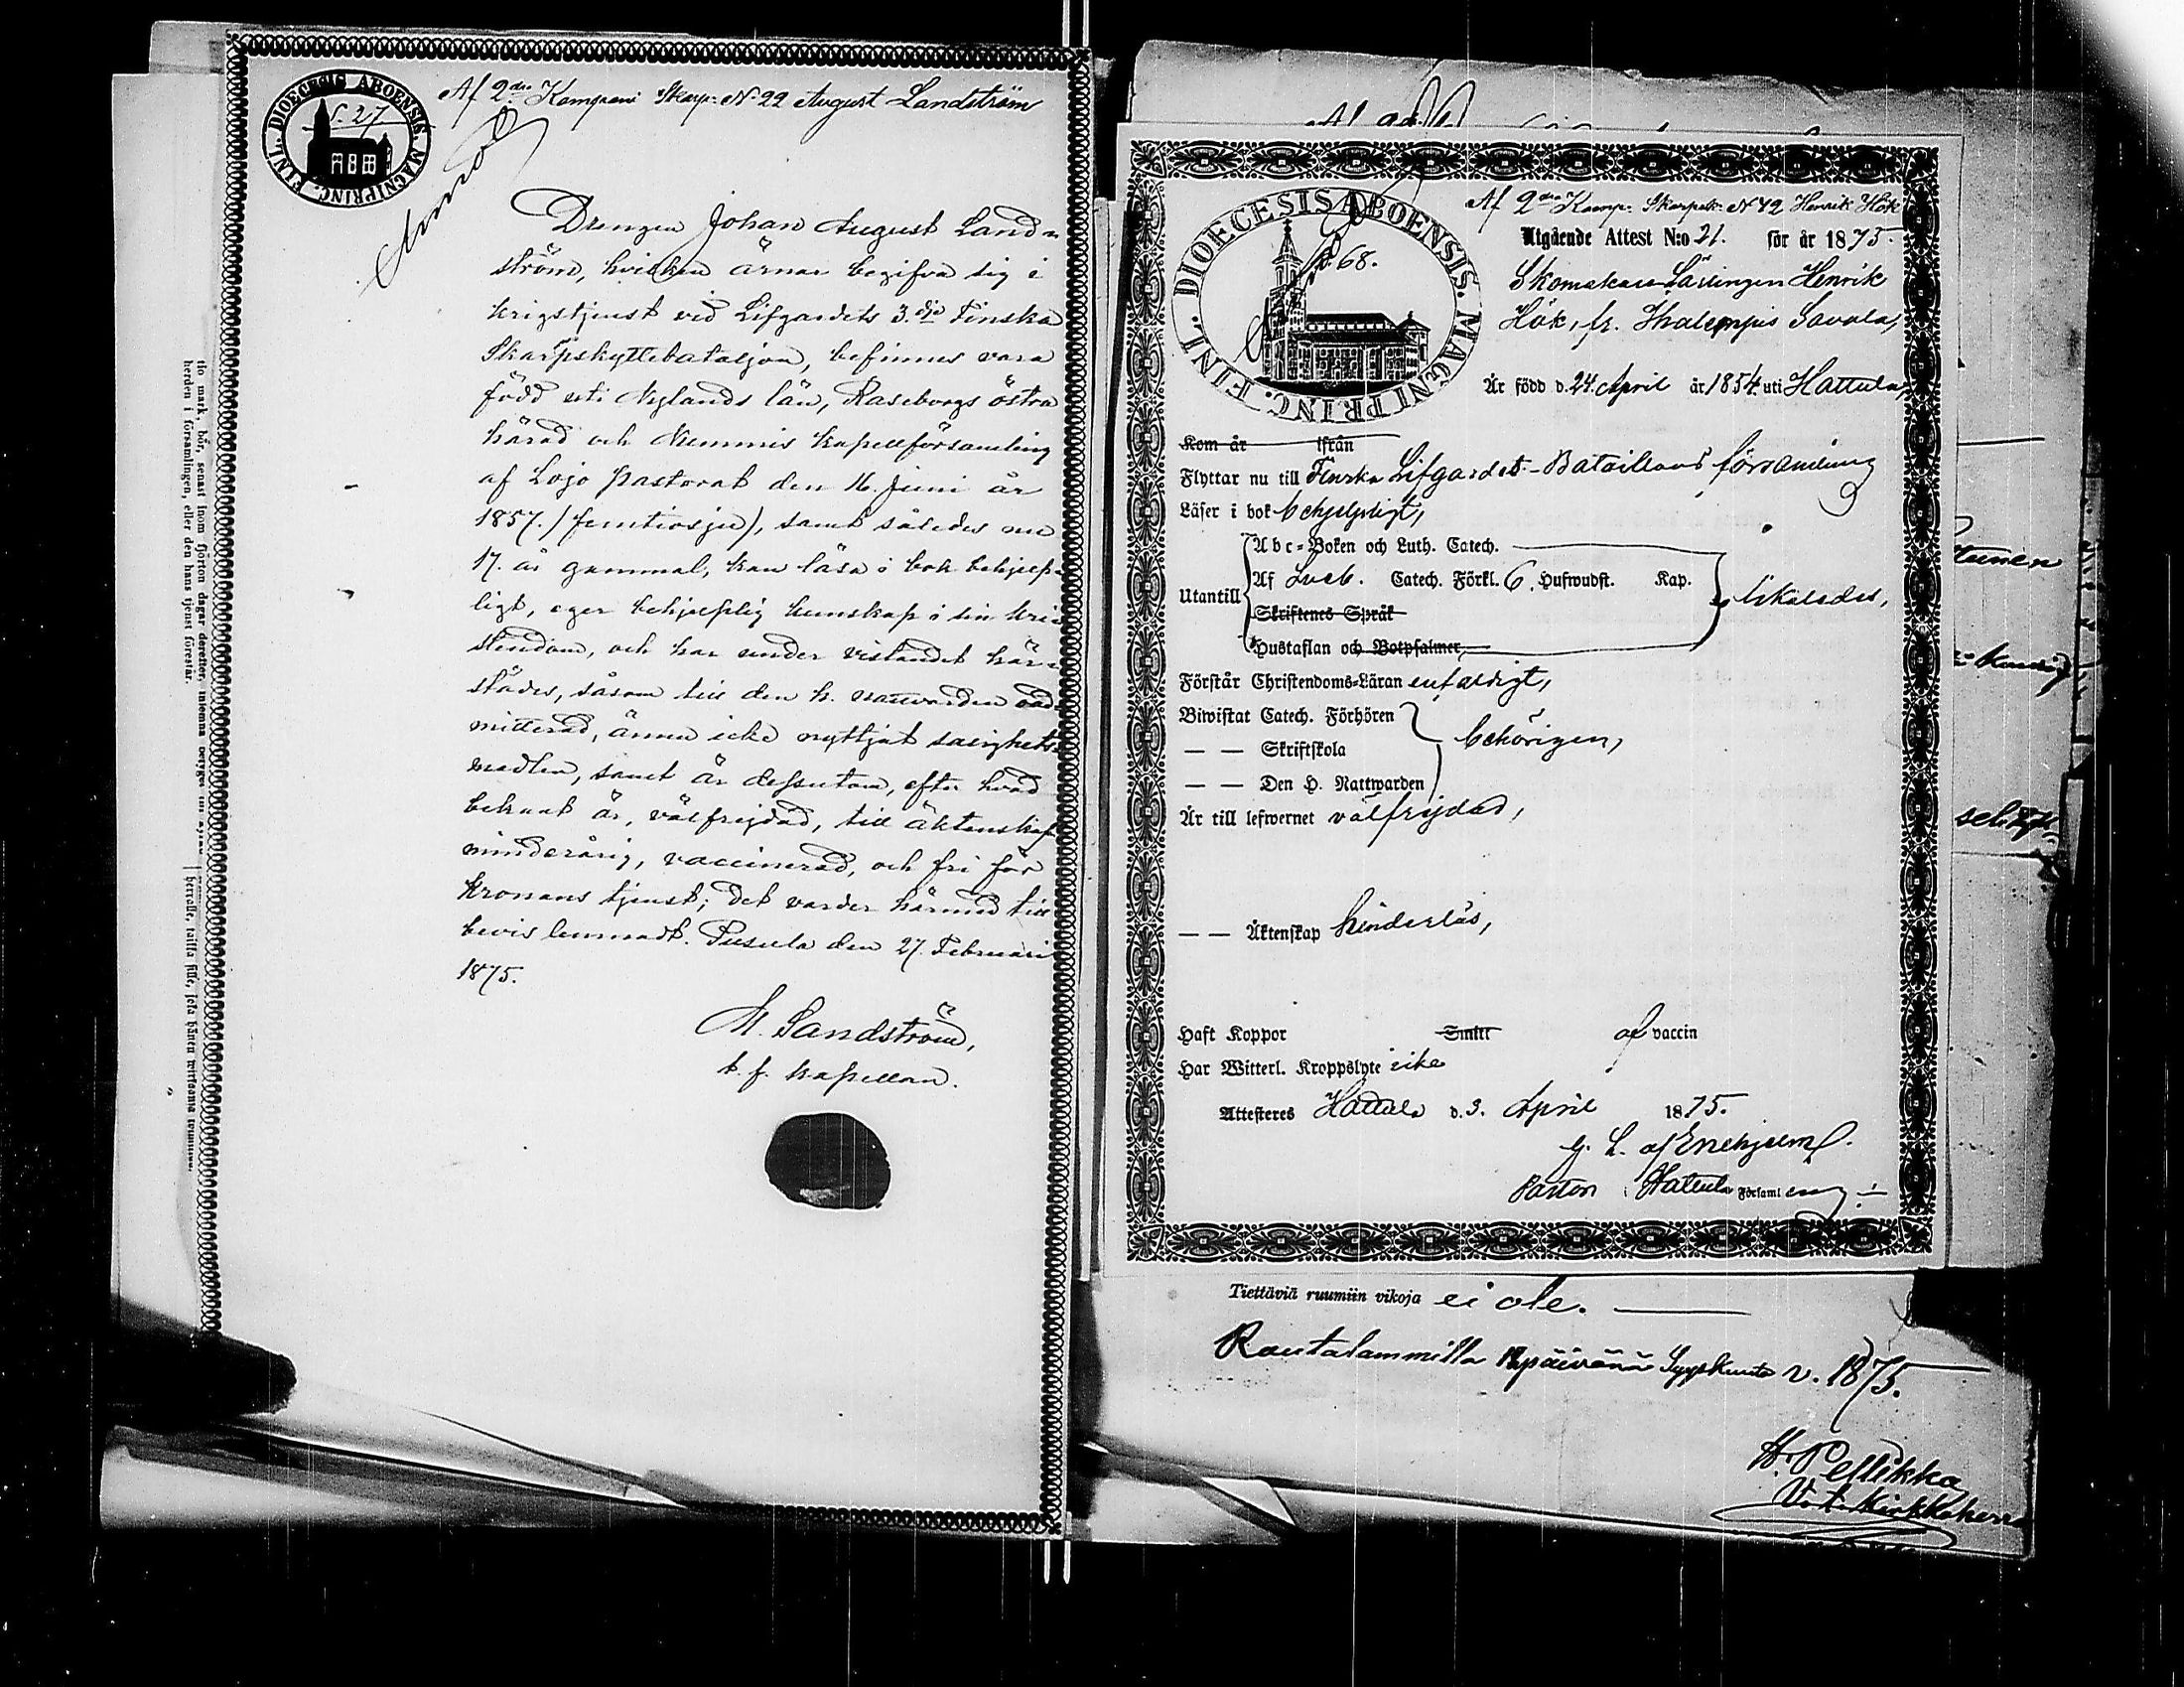 FINL. DIOECESIS ABOENSIS. MAGNI PRINC.
S. 27
Af 2dra Kompani Skarp: No 22 August Landström
Drengen Johan August Land-
ström, hvilken ärnar begifva sig i
krigstjenst vid Lifgardets 3.dje Finska
Skarpskyttebataljon, befinnes vara
född uti Nylands län, Raseborgs östra
härad och Nummis kapellförsamling
af Lojo pastorat den 16. Juni år
1857. /femtiosju/, samt således nu
17. år gammal, kan läsa i bok behjelp-
ligt, eger behjelplig kunskap i sin kri-
stendom, och har under vistandet här-
städes, såsom till den h. nattvarden ad-
mitterad, ännu icke nyttjat salighets-
medlen, samt är dessutom, efter hvad
bekant är, välfrejdad, till äktenskap
minderårig, vaccinerad, och fri för
kronans tjenst; det varder härmed till
bevis lemnadt. Pusula den 27. Februari
1875.
M. Sandström,
t. f. kapellan.
tio mark, bör, senast inom fjorton dagar derefter, inlemna
herden i församlingen, eller den hans tjenst förestår.
FINL. DIOECESIS ABOENSIS. MAGNI PRINC.
p. 68.
Af 2dra Komp: Skarpsk: No 42 Henrik Hök
Utgående Attest N:o 21. för år 1875.
Skomakare Lärlingen Henrik
Hök, fr. Savala,
Är född d. 24. April år 1854. uti Hattula,
Kom år ifrån
Flyttar nu till Finska Lifgardets-Bataillons församling
Läser i bok behjelpligt,
Utantill
Abc-Boken och Luth. Catech.
Af Sveb. Catech. Förkl. 6. Hufwudst. Kap.
Skriftenes Språk
Hustaflan och Botpsalmer,
likaledes,
Förstår Christendoms-Läran enfaldigt,
Biwistat Catech. Förhören
— — Skriftskola
— — Den H. Nattwarden
behörigen,
Är till lefwernet välfrejdad,
— — Äktenskap hinderlös,
Haft Koppor Smitt af vaccin
Har Witterl. Kroppslyte icke
Attesteres Hattula d. 3. April 1875.
G. L. af Enehjelm.
Pastor i Hattula Församling
Tiettäviä ruumiin vikoja ei ole.
Rautalammilla päivänä Syyskuuta v. 1875.
H. Pellikka
V. t. Kirkkoherra